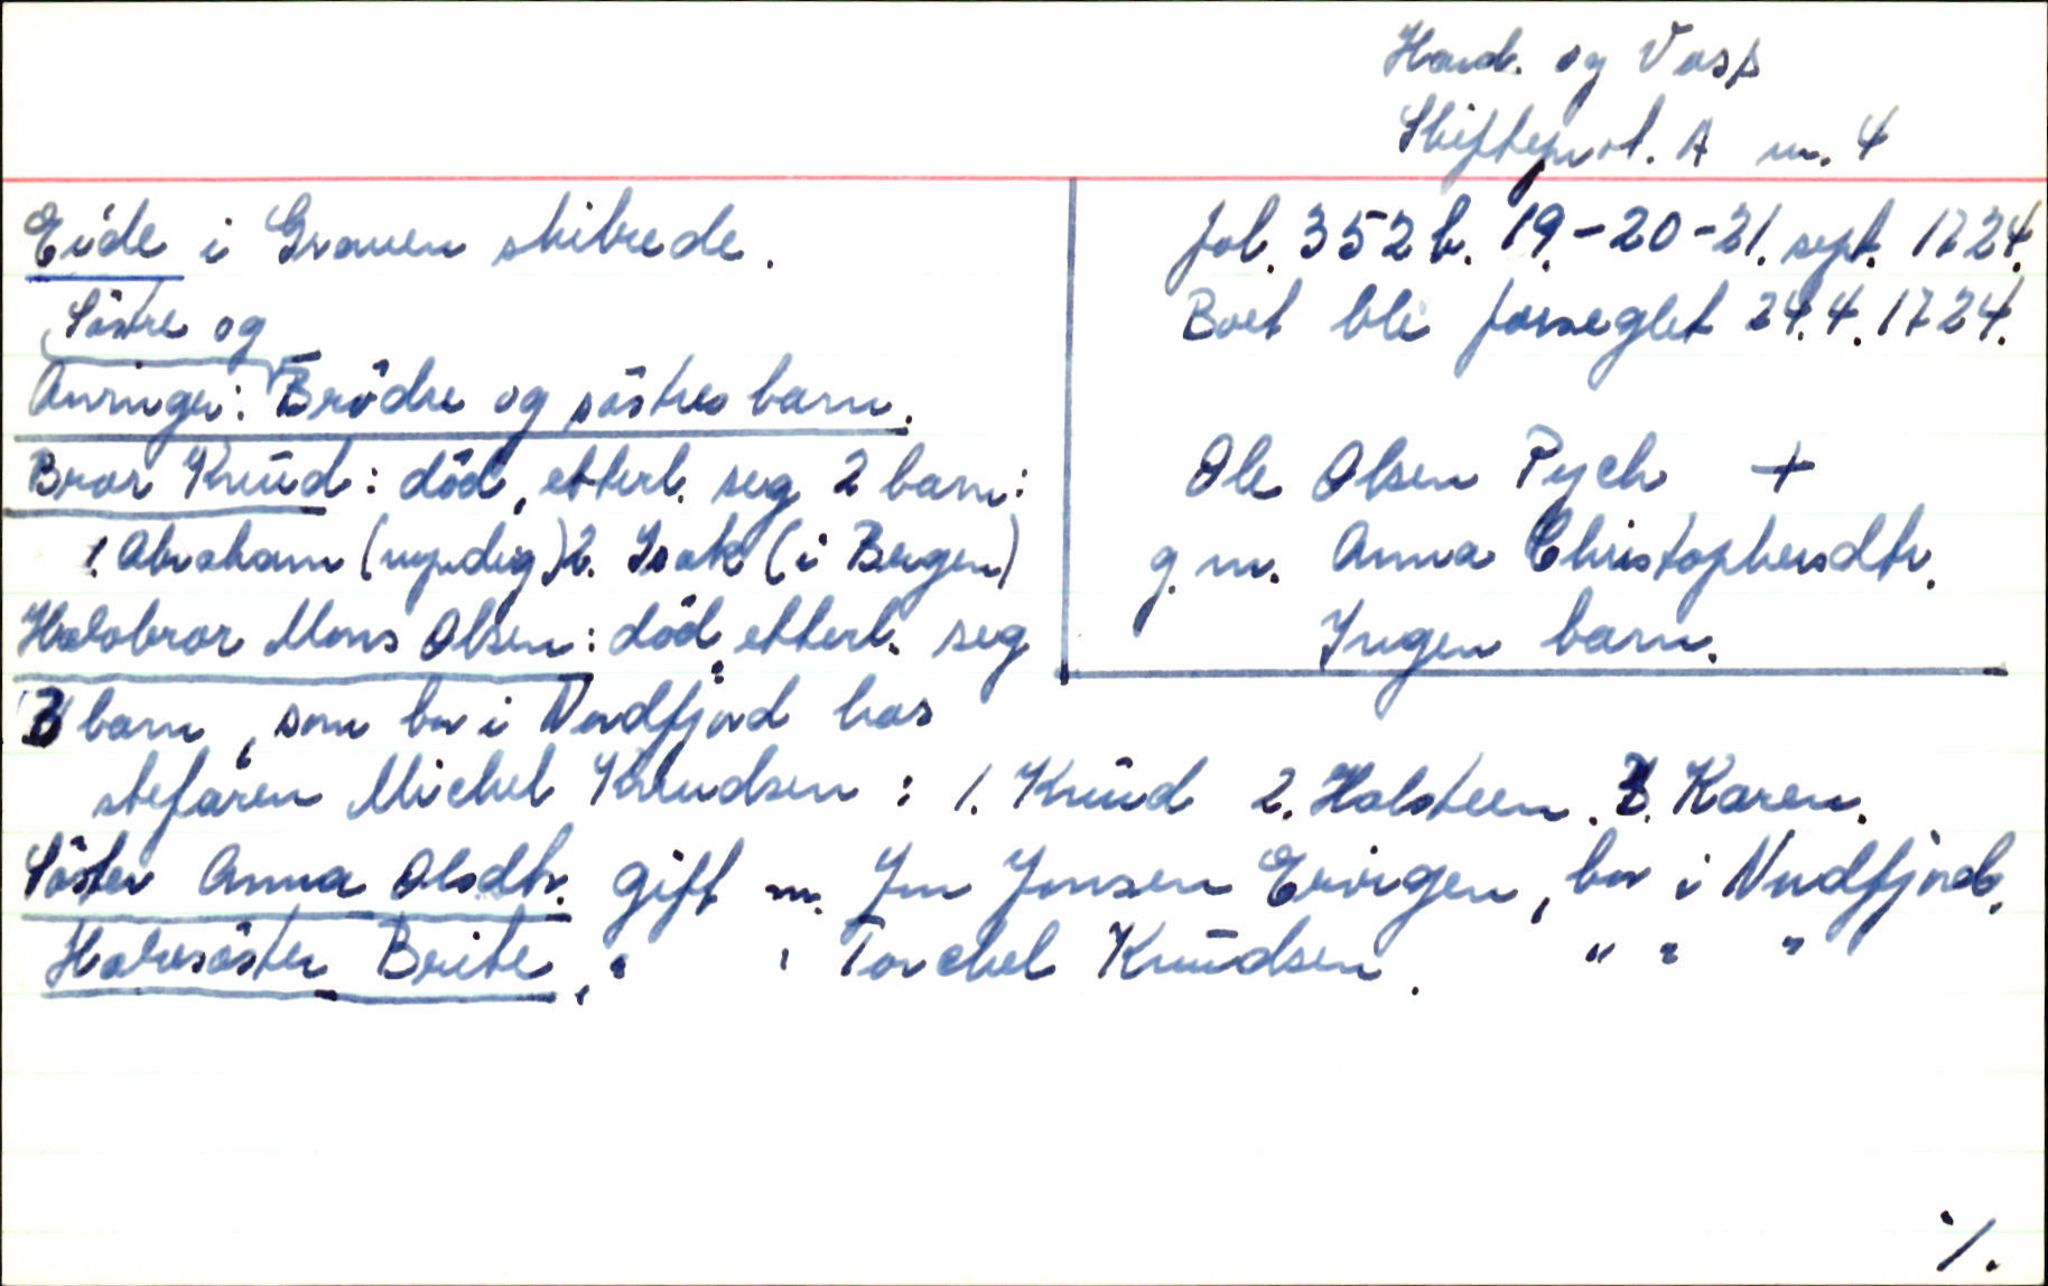 Hard. og Voss
Skifteprot. A nr. 4
Eide i Graven skibrede.
fol. 352b. 19.-20-21. sept. 1724.
Boet ble forseglet 24.4.1724.
Söstre og
Arvinger: Brödre og söstres barn.
Ole Olsen Pych +
g.m. Anna Christophersdtr.
Ingen barn.
Bror Knud: död, etterl. seg 2 barn:
1. Abraham (myndig) 2. Isak (i Bergen)
Halvbror Mons Olsen: död, etterl. seg
3 barn, som bor i Nordfjord hos
stefaren Michel Knudsen: 1. Knud 2. Halsteen. 3. Karen.
Söster Anna Olsdtr. gift m. Jon Jonsen, bor i Nordfjord.
Halvsöster Brite, " " Torchel Knudsen. " " "
./.